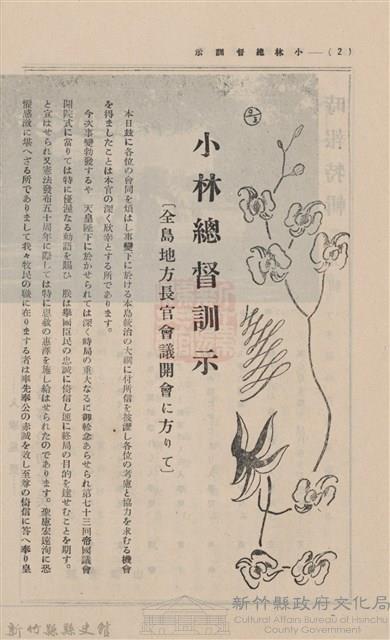 (2)——小林總督訓示
小林總督訓示
〔全島地方長官會議開會に方りて〕
本日玆に各位の會同を煩はし事變下に於ける本島統治の大綱に付所信を披瀝し各位の考慮と協力を求むる機會
を得ましたことは本官の深く欣幸とする所であります。
今次事變勃發するや 天皇陛下に於かせられては深く時局の重大なるに御軫念あらせられ第七十三回帝國議會
開院式に當りては特に優渥なる勅語を賜ひ 朕は擧國臣民の忠誠に倚信し速に終局の目的を達せむことを期す。
と宣はせられ又憲法發布五十周年に際しては特に恩赦の惠澤を施し給はせられたのであります。聖慮宏遠洵に恐
懼感激に堪へざる所でありまして我々牧民の職に在りまする者は率先奉公の赤誠を效し至尊の倚信に答へ奉り皇
新竹縣縣史館
新竹縣政府文化局
Cultural Affairs Bureau of Hsinchu
County Government